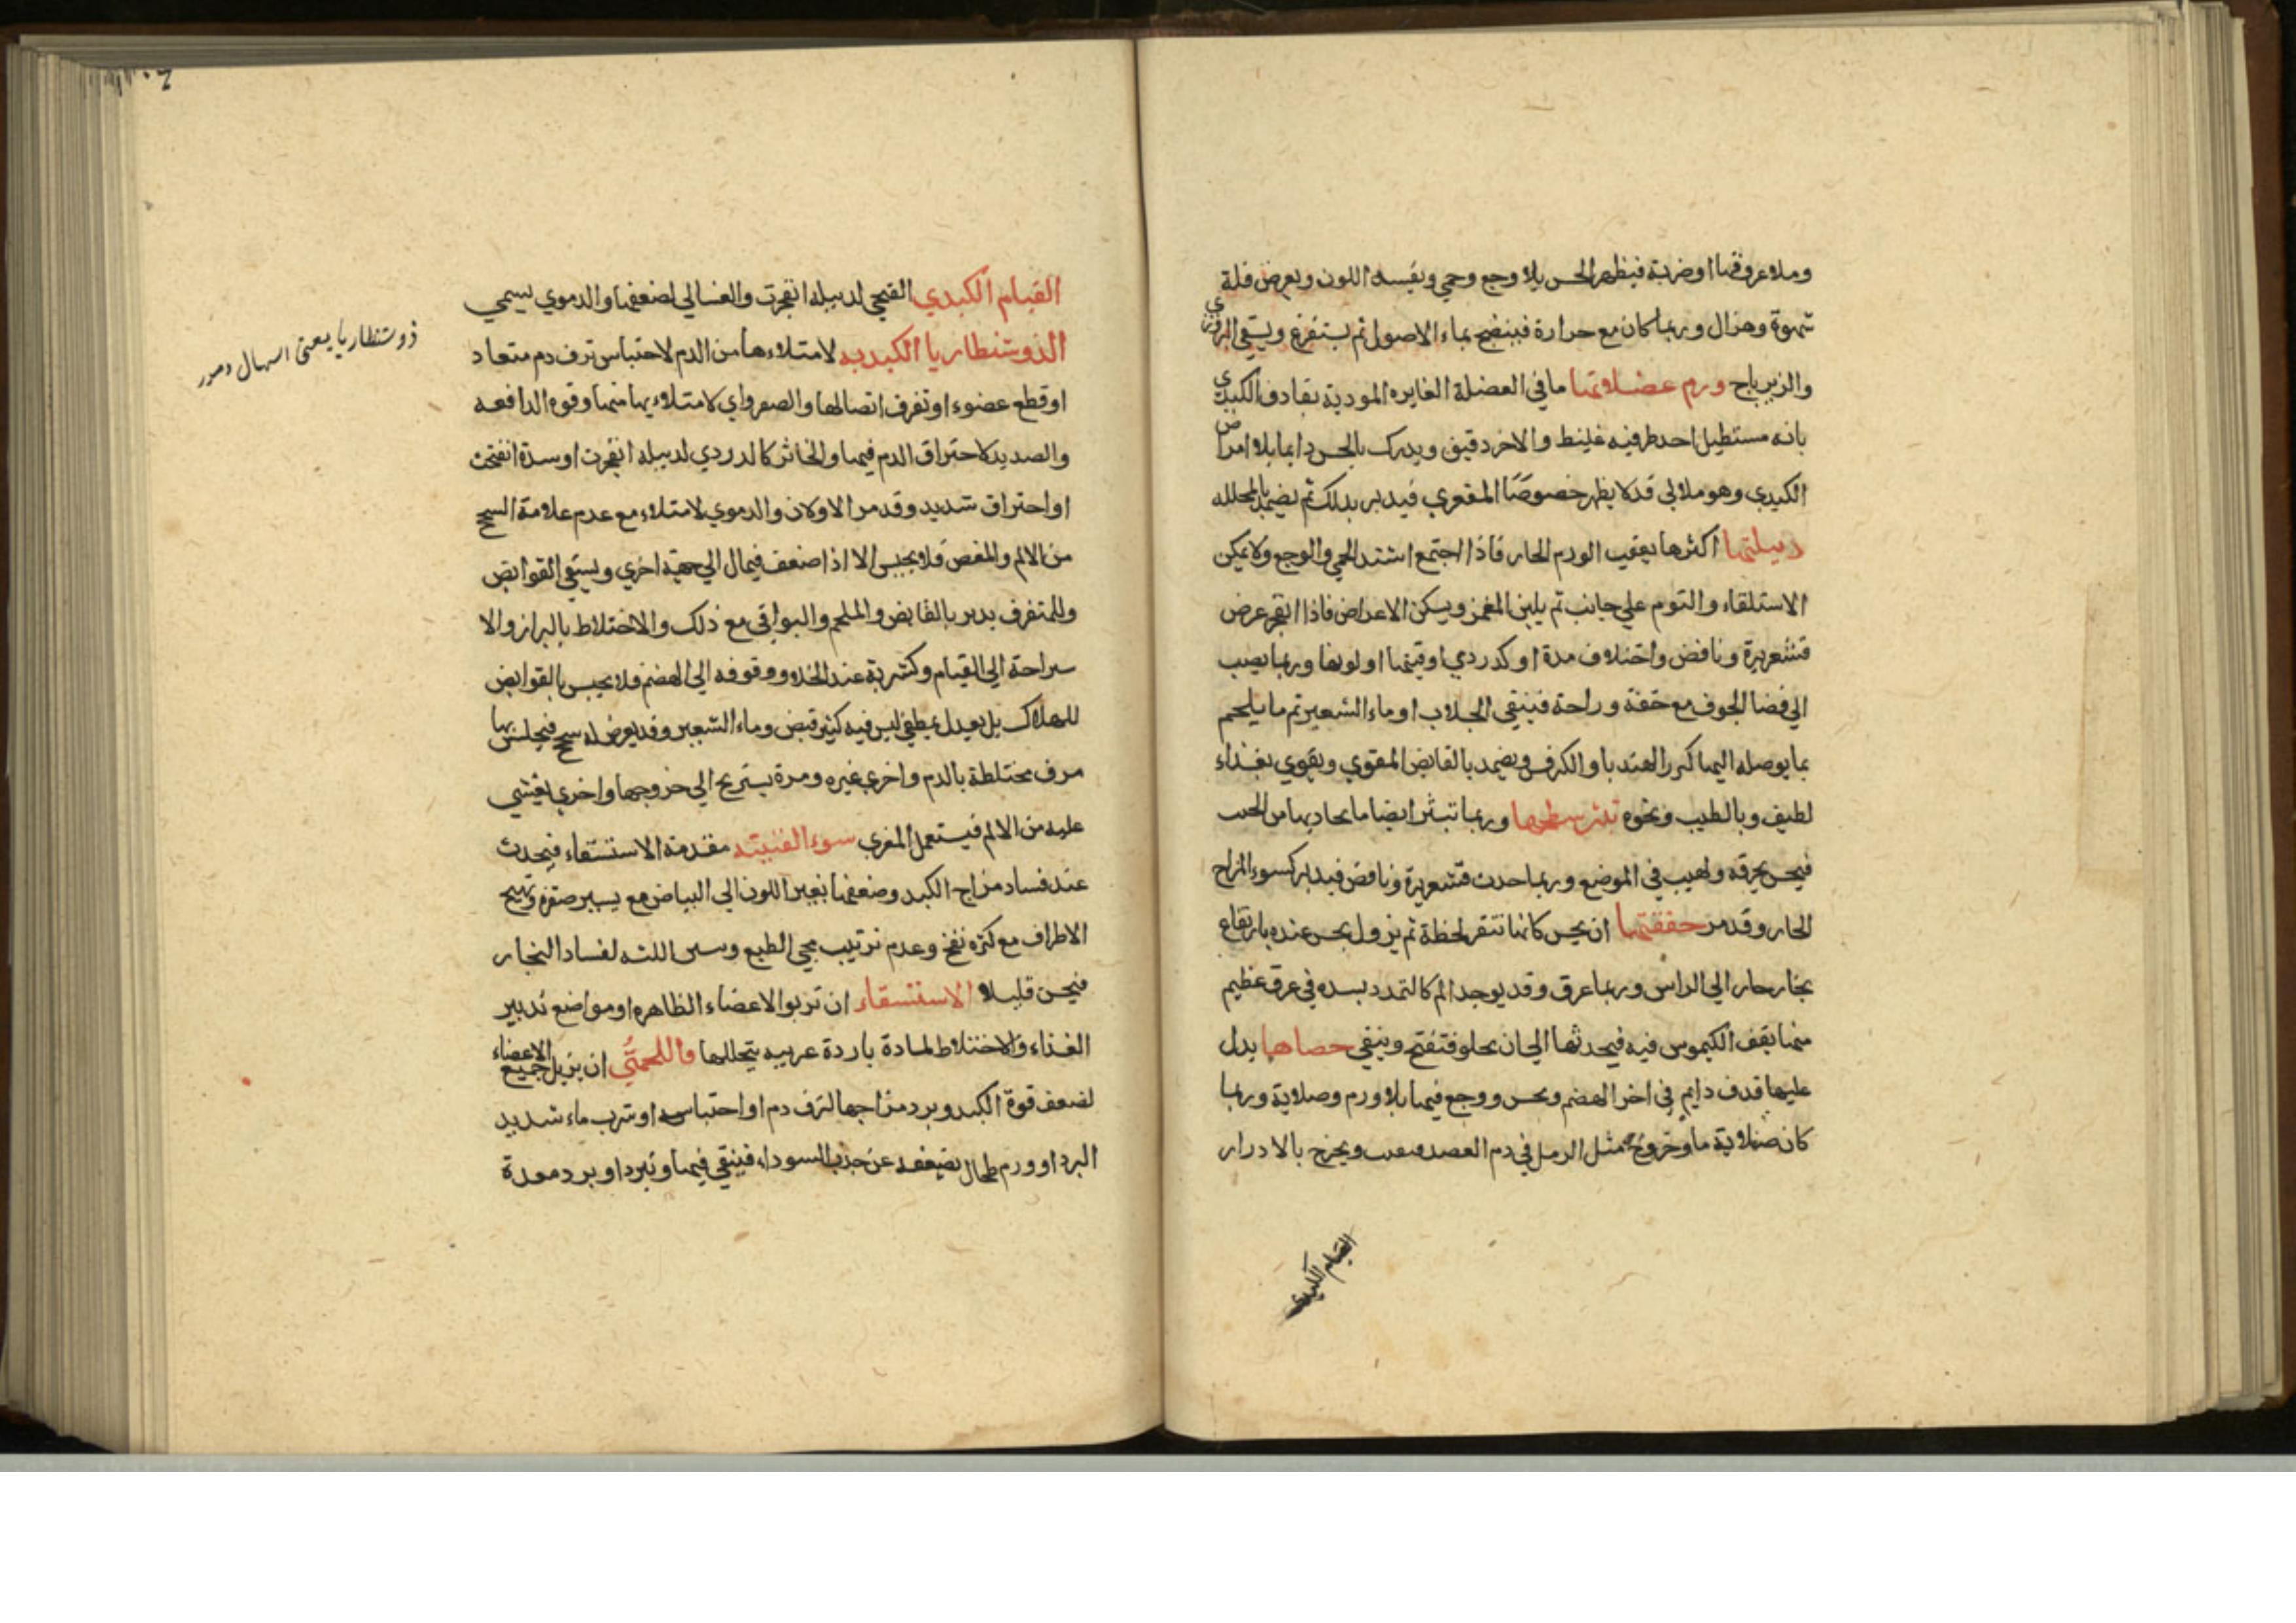 وملاء عروقها او ضربة فيظهر الحس بلا وجع وحمي ويفسد اللون ويعرض قلة
شهوة وهزال وربما كان مع حرارة فينضج بماء الاصول ثم يستفرغ ويسقي البزوري
والزيرباج ورم عضلاتها ما في العضلة الغايره الموديۃ يفارق الكبدي
بانه مستطيل احد طرفيه غليظ والاخر دقيق ويدرك بالحس دايما بلا امراض
الكبدي وهو هلالي قد لا يظهر خصوصًا المقعري فيدبر بذلك ثم يضمد بالمحلله
دبيلتها اكثرها يعقب الورم الحار فاذا اجتمع اشتد الحمي والوجع ولا يمكن
الاستلقاء والنوم علي جانب ثم يلين المغمز ويسكن الاعراض فاذا انفجر عرض
قشعريرة ونافض واختلاف مدة او كدردي او قيئها او لونها وربما يصب
الي فضا الجوف مع خفة وراحة فينقي الجلاب او ماء الشعير ثم ما يلحم
بما يوصله اليها كبزر الهندبا والكرفس ويضمد بالقابض المقوي ويقوي بغذاء
لطيف وبالطيب ونحوه تبثر سطحها وربما تبثر ايضا ما يحاديها من الجنب
فيحس بحرقه ولهيب في الموضع وربما احدث قشعريرة ونافض فيدبر كسوء المزاج
الحار وقد مر خفقتها ان يحس كانها تنقر لحظة ثم يزول يحس عنده بارتفاع
بخار حار الي الراس وربما عرق وقد يوجد الم كالتمدد بسده في عرق عظيم
منها يقف الكيموس فيه فيحدثها الي ان يحلو فتفتح وينقي حصاها يدل
عليها قذف دايم في اخر الهضم ويحس ووجع فيها بلا ورم وصلابة وربما
كان صلابة ما وخروج مثل الرمل في دم الفصد ويخرج بالادرار
القيام الكبدي
القيام الكبدي القيحي لدبيله انفجرت والغسالي لضعفها والدموي يسمي
ذوشنطاريا يعني اسهال دمور
الذوشنطاريا الكبديه لامتلاءها من الدم لاحتباس نزف دم متعاد
او قطع عضوء او تفرق اتصالها والصفراوي لامتلاء بها منها وقوه الدافعه
والصديد لاحتراق الدم فيها والخاثر كالدردي لدبيله انفجرت او سدة انفتحت
او احتراق شديد وقد مر الاولان والدموي لامتلاء مع عدم علامة السحج
من الالم والمغص فلا يحبس الا اذا ضعف فيمال الي جهة اخري ويسقي القوابض
وللمتفرق يدبر بالقابض والملحم والبواقي مع ذلك والاختلاط بالبراز والا
ستراحة الي القيام وكثرته عند الخلاو ووقوفه الي الهضم فلا يحبس بالقوابض
للهلاك بل يعدل بمطفي ليس فيه كثير قبض وماء الشعير وقد يعرض له سحج فيجلس بها
مرة مختلطة بالدم واخري غيره ومرة يستريح الي خروجها واخري يغشي
عليه من الالم فيستعمل المغري سوء القنيته مقدمة الاستسقاء فيحدث
عند فساد مزاج الكبد وضعفها تغير اللون الي البياض مع يسير صفره وتهيج
الاطراف مع كثره نفخ وعدم ترتيب مجي الطبع اللثه لفساد البخار
قليلا الاستسقاء ان تربوا الاعضاء الظاهره او مواضع تدبير
الغذاء والاختلاط لمادة باردة غريبه يتخللها فاللحمي ان يزيل جميع الاعضاء
لضعف قوة الكبد وبرد مزاجها لنزف دم او احتباسه او شرب ماء شديد
البرد او ورم طحال يضعفه عن جذب السوداء فينقي فيها وتبرد او برد معدة